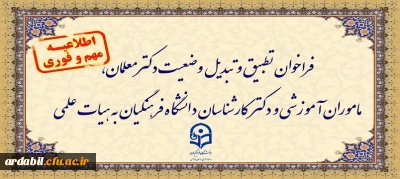 اطلاعیه
مهم و فوری
فراخوان تطبیق و تبدیل وضعیت دکتر معلمان،
ماموران آموزشی و دکتر کارشناسان دانشگاه فرهنگیان به هیات علمی
ardabil.cfu.ac.ir